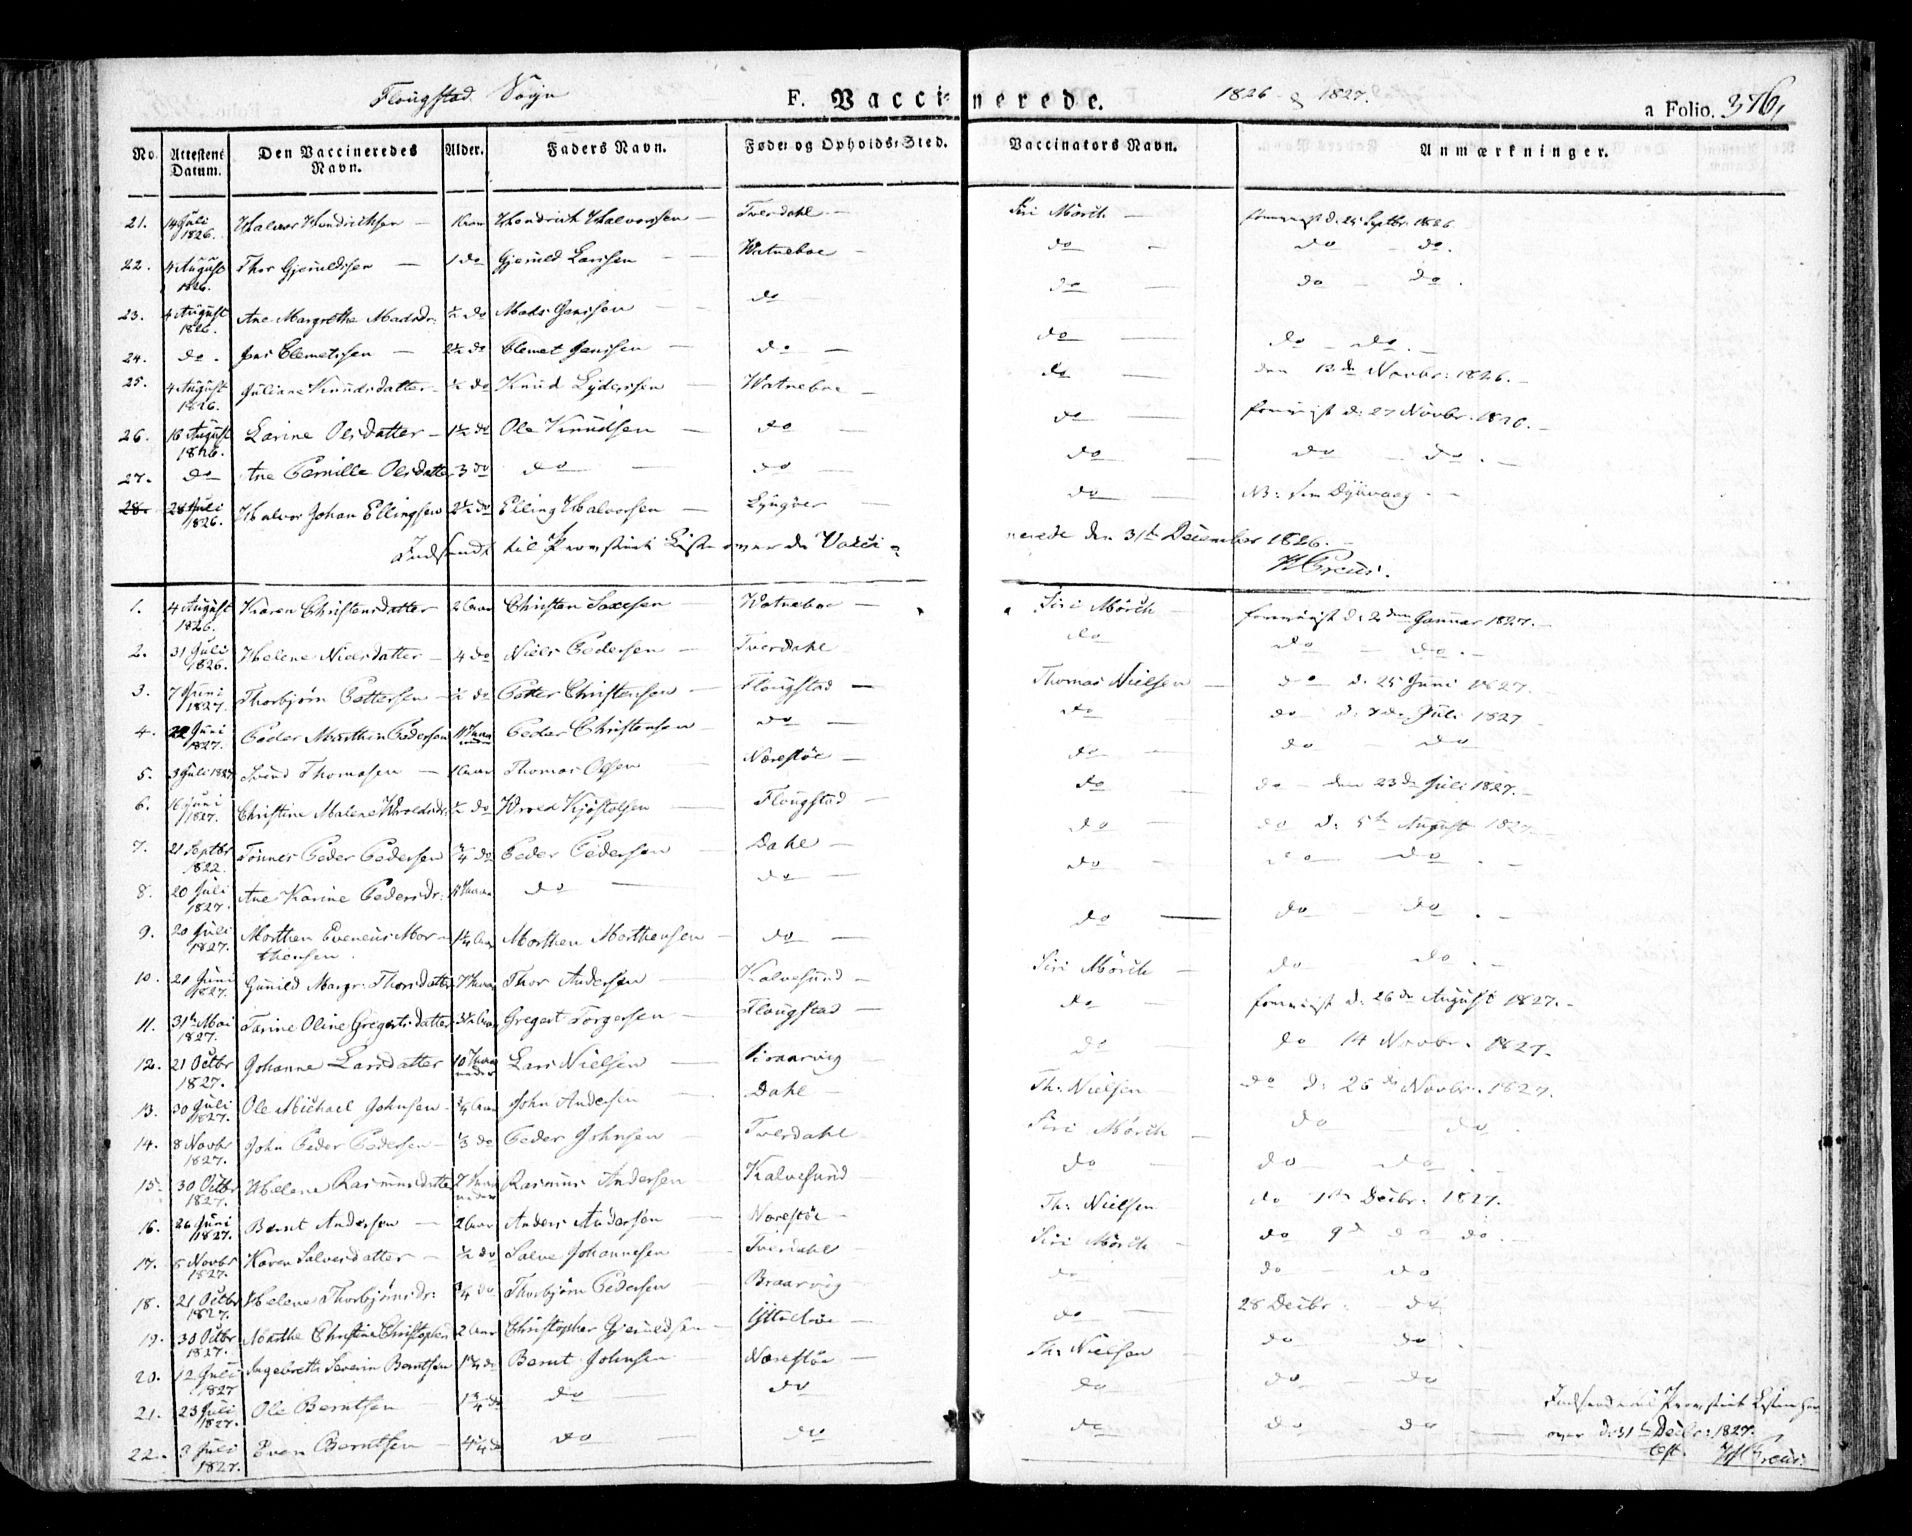 Flougstad Sogn F. Vaccinerede. 1826 & 1827. a Folio. 376,
No. Attestens Datum. Den Vaccineredes Navn. Alder. Faders Navn. Føde- og Opholds-Sted. Vaccinators Navn. Anmærkninger.
21. 14 Juli 1826. Halvor Hendrichsen — 1 aar Hendrich Halvorsen — Tverdahl — Siri Mörch — d. 25 Septbr. 1826
22. 4 August 1826. Thor Gjeruldsen — 1 do Gjeruld Larssen — Watneboe — do — do — do.
23. 4 August 1826. Ane Margrethe Madsdr: ½ do Mads Jenssen — do — do — do — do.
24. do. Clemetssen — 2½ do Clemet Jenssen — do — do — do — do. —
25. 4 August 1826. Juliane Knudsdatter — ½ do Knud Lydersen — Watneboe — do — den 12de Novbr: 1826. —
26. 16 August 1826. Larine Olsdatter — 1½ do Ole Knudsen — do — do — d. 27 Novbr. 1826. —
27. do Ane Pernille Olsdatter 3 do do — do — do — do — do. —
28. 28 Juli 1826. Halvor Johan Ellingsen 2½ do Elling Halvorsen — Lyngöer — do — NB: Dyvaag —
Indsendt til Provstiet Liste over de Vacci-
nerede den 31te December 1826. —
H Creus.
1. 4 August 1826. Karen Christensdatter 2 aar Christen Saxesen — Watneboe — Siri Mörch — d. 2den Januar 1827. —
2. 31 Juli 1826. Helene Nielsdatter — 4 do Niels Pedersen — Tverdahl do do — do. —
3. 7 Juni 1827. Thorbjørn Pettersen — ½ do Petter Christensen — Flougstad — Thomas Nielsen — do d. 25 Juni 1827. —
4. 22 Juni 1827. Peder Marthin Pedersen Peder Christensen — do — do — do d. Juli 1827
5. 3 Juli 1827 Svend Thomasen — 1 aar Thomas Olsen — Narestöe — do — do — do
6. 16 Juni 1827. Christine Malene Wroldsdr: ½ do Wrold Kjöstolsen — Flougstad — do do — den 23de Juli 1827. —
7. 21 Septbr 1822. Tönnes Peder Pedersen ¾ do Peder Pedersen — Dahl — do — do d. 5te August 1827. —
8. 20 Juli 1827. Ane Karine Pedersdr: do — do — do — do — do. —
9. 20 Juli 1827. Morthen Evencius Mor-
thensen. 1¼ aar Morthen Morthensen — do — do — do — do. —
10. 21 Juni 1827. Gunild Margr: Thorsdatter Thor Andersen — Kalvesund — Siri Mörch — do do. —
11. 31te Mai 1827. Tarine Oline Gregertsdatter 3½ aar Gregert Torgersen — Flougstad — do — d. 26de August 1827. —
12. 21 Octbr 1827. Johanne Larsdatter Lars Nielsen — Braarvig do — do 14 Novbr. 1827.
13. 30 Juli 1827. Ole Michael Johnsen ¾ aar John Andersen — Dahl — Th: Nielsen do d: 26de Novbr. 1827.
14. 8 Novbr 1827. John Peder Pedersen — ⅓ do Peder Johnsen — Tverdahl Siri Mörch — do — do.
15. 30 Octbr 1827. Helene Rasmusdatter Rasmus Andersen Kalvesund — do — do do. —
16. 26 Juni 1827. Bernt Andersen — 2 aar Anders Andersen — Narestöe — Th: Nielsen do 1ste Decbr. 1827.
17. 8 Novbr 1827. Karen Salvesdatter — ½ do Salve Johannesen Tverdahl — Siri Mörch — do 9d do do. —
18. 21 Octbr 1827. Helene Thorbjörnsdr: ¾ do Thorbjörn Pedersen — Braarvig — do — do — do
19. 30 Octbr 1827. Marthe Christine Christophers 2 aar Christopher Gjeruldsen — — do — 28 Decbr: — do
20. 12 Juli 1827 Ingebreth Severin Berntsen 1¾ do Bernt Johnsen Narestöe — Th: Nielsen — do do. —
21. 23 Juli 1827. Ole Berntsen — 1¾ do do — do do — do — do
22. 3 Juli 1827. Even Berntsen — 4¼ do do — do do — do — do —
Indsendt til Provstiet Listen her-
over d. 31te Decbr: 1827.
H Creus.